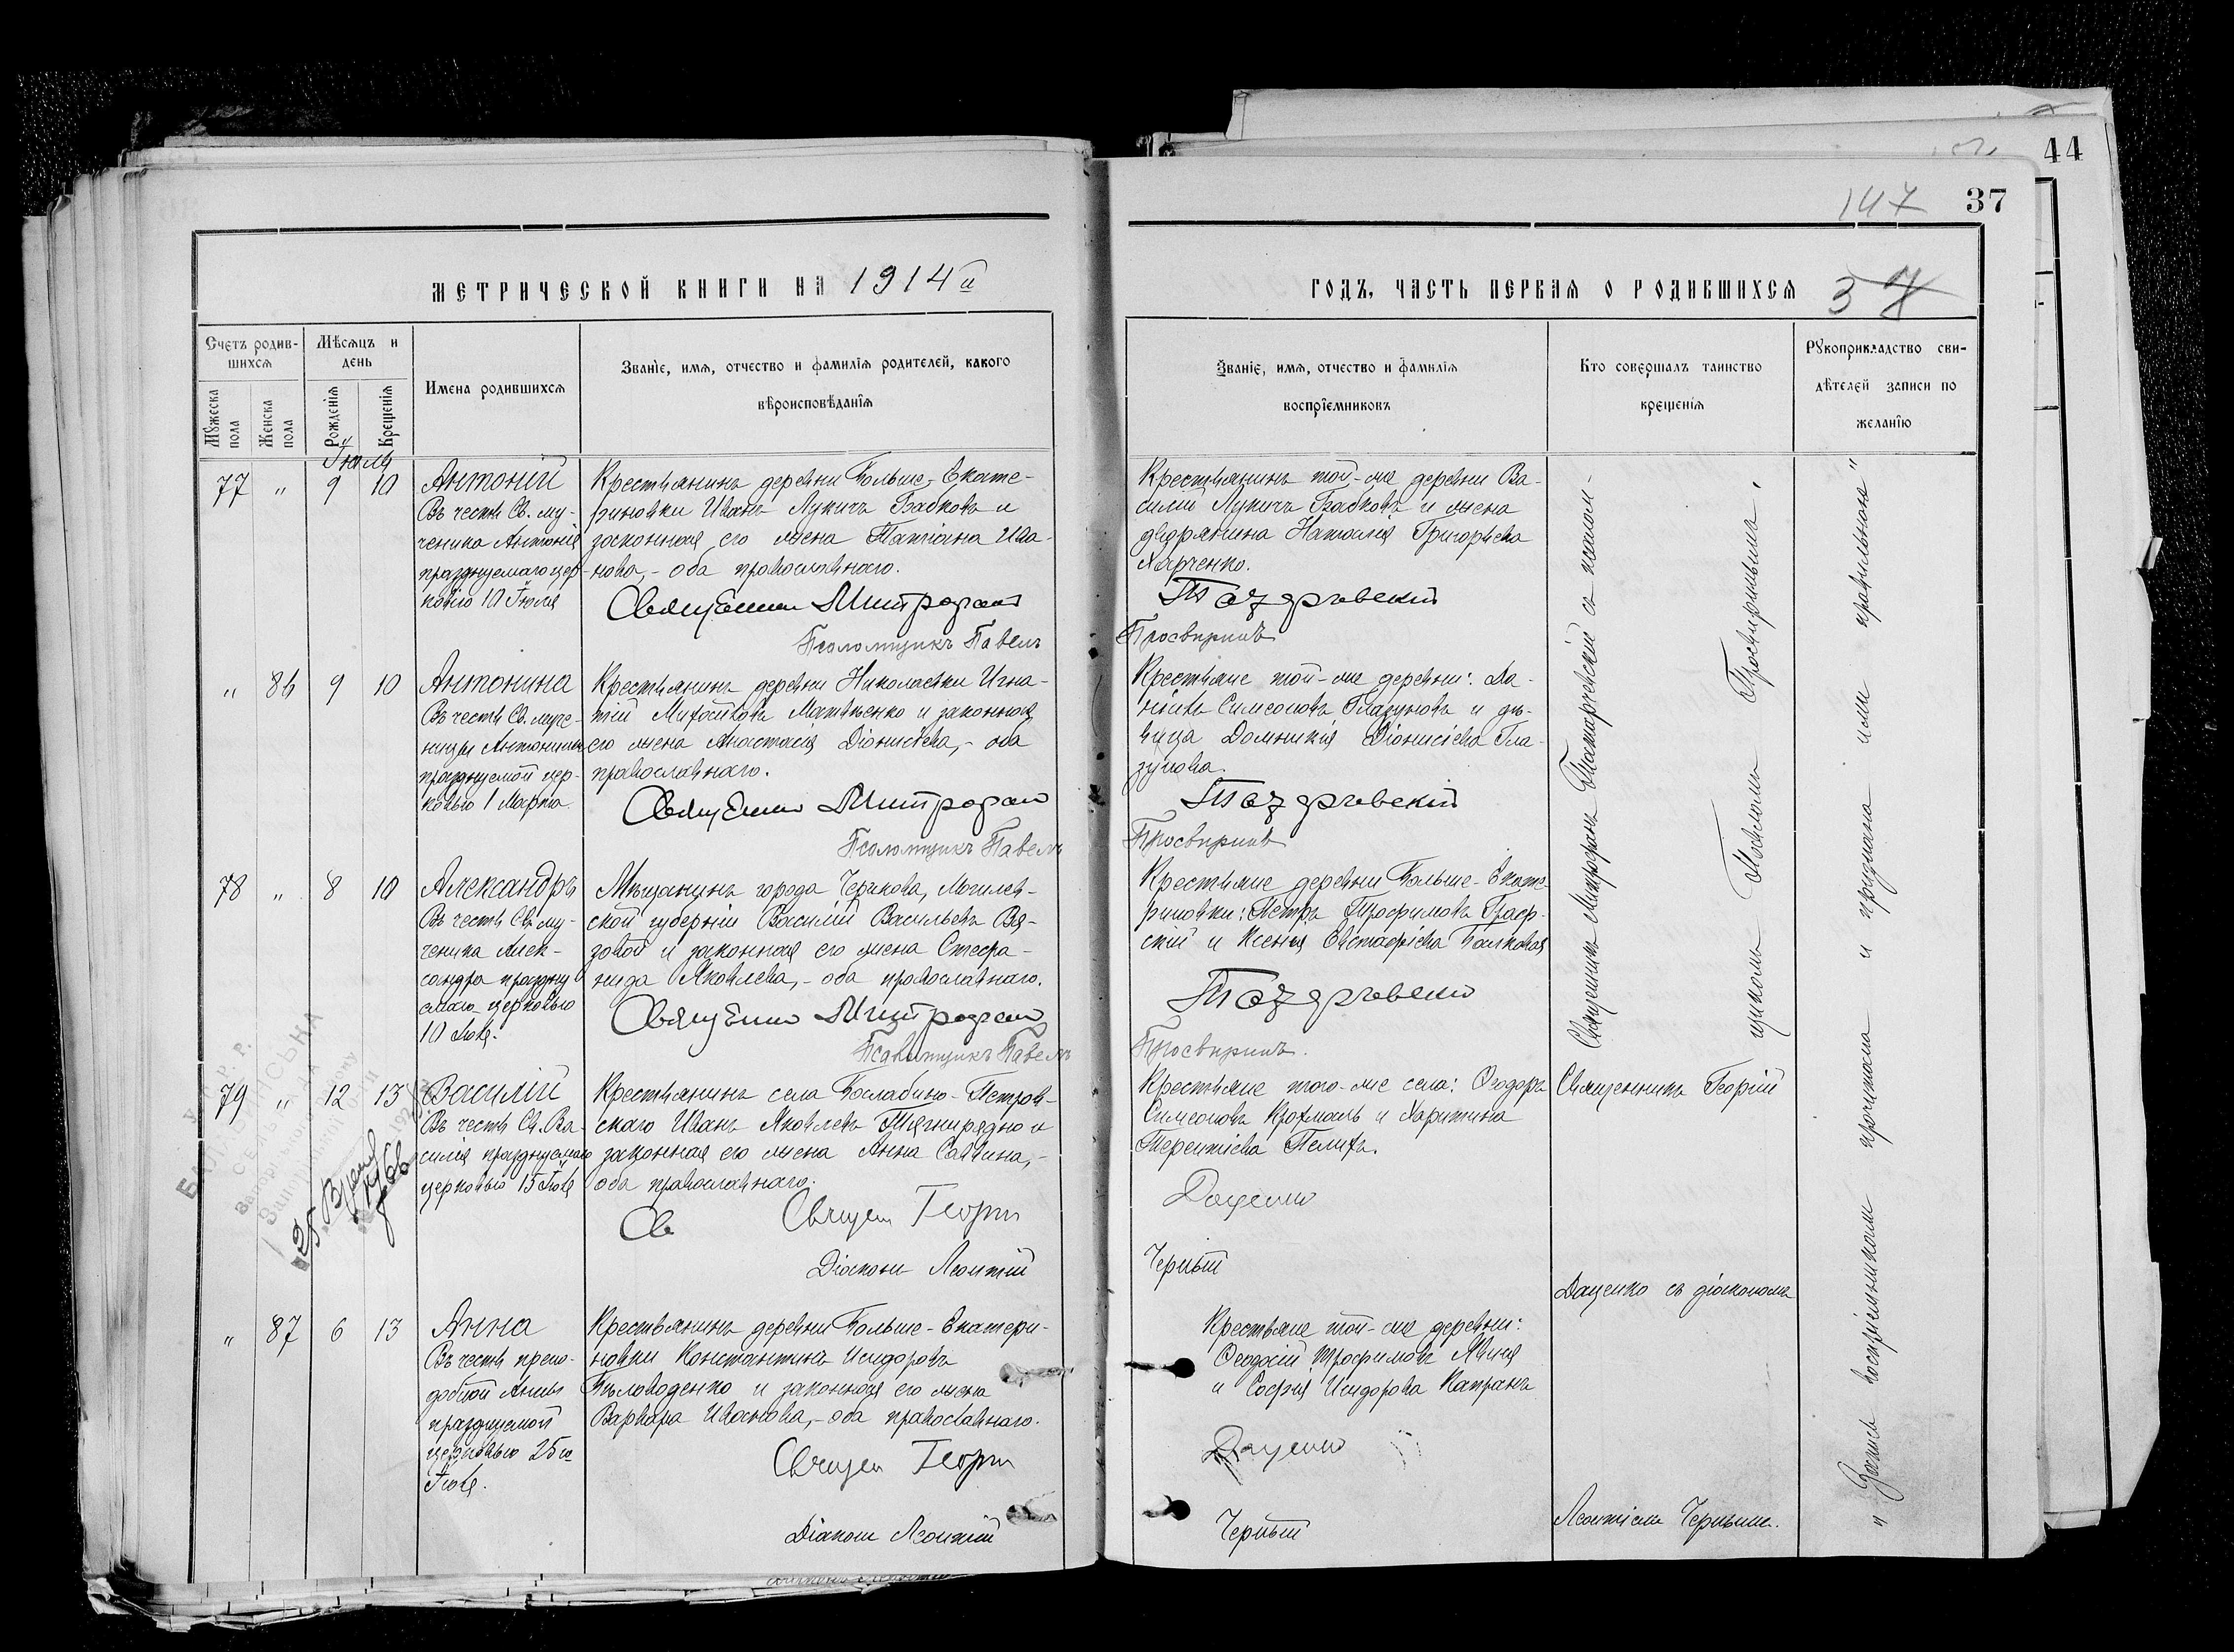 44
147 37
МЕТРИЧЕСКОЙ КНИГИ НА 1914й
ГОДЪ, ЧАСТЬ ПЕРВАЯ О РОДИВШИХСЯ 37
Счетъ родив-
шихся
Мужеска пола
Женска пола
Мѣсяцъ и
день
Рожденія
Крещенія
Имена родившихся
Званіе, имя, отчество и фамилія родителей, какого
вѣроисповѣданія
Званіе, имя, отчество и фамилія
воспріемниковъ
Кто совершалъ таинство
крещенія
Рукоприкладство сви-
дѣтелей записи по
желанію
Іюль
77 " 9 10
Антоній
Въ честь Св. му-
ченика Антонія
празднуемаго цер-
ковію 10 Іюля
Крестьянинъ деревни Больше-Екате-
риновки Иванъ Лукичъ Бабковъ и
законная его жена Татіана Ива-
нова,- оба православнаго.
Священникъ Митрофанъ
Псаломщикъ Павелъ
Крестьянинъ той-же деревни Ва-
силій Лукичъ Бабковъ и жена
дворянина Наталія Григорьева
Харченко.
Татаревскій
Просвиринъ
" 86 9 10
Антонина
Въ честь Св. муче-
ницы Антонины
празднуемой цер-
ковью 1 Марта
Крестьянинъ деревни Николаевки Игна-
тій Матвѣенко и законная
его жена Анастасія Діонисіева,- оба
православнаго.
Священникъ Митрофанъ
Псаломщикъ Павелъ
Крестьяне той-же деревни: Да-
ніилъ Симеоновъ Глазуновъ и дѣ-
вица Домникія Діонисіева Гла-
зунова.
Татаревскій
Просвиринъ
78 " 8 10
Александръ
Въ честь Св. му-
ченика Алек-
сандра праздну-
емаго церковью
10 Іюля.
Мѣщанинъ города Черикова, Могилев-
ской губерніи Василій Васильевъ Вя-
зовой и законная его жена Стефа-
нида Яковлева,- оба православнаго.
Священникъ Митрофанъ
Псаломщикъ Павелъ
Крестьяне деревни Больше-Екате-
риновки: Петръ Трофимовъ Граф-
скій и Ксенія Евстафіева
Татаревскій
Просвиринъ.
Священникъ Митрофанъ Татаревскій съ псалом-
щикомъ Павломъ Просвиринымъ.
79 " 12 13
Василій
Въ честь Св. Ва-
силія празднуемаго
церковью 15 Іюля
Крестьянинъ села Бослабино-Петров-
скаго Иванъ Яковлевъ Тягнирядно и
законная его жена Анна Саввина,-
оба православнаго.
Св Священ Георгій
Діаконъ Леонтій
Крестьяне того-же села: Ѳеодоръ
Симеоновъ Крохмаль и Харитина
Терентіева Пелихъ.
Даценко
Черный
Священникъ Георгій
Даценко съ діакономъ
" 87 6 13
Анна
Въ честь препо-
добной Анны
празднуемой
церковью 25го
Іюля.
Крестьянинъ деревни Больше-Екатери-
новки Константинъ Исидоровъ
Бѣловоденко и законная его жена
Варвара Иванова,- оба православнаго.
Священ Георгій
Діаконъ Леонтій
Крестьяне той-же деревни:
Ѳеодосій Трофимовъ
и Софія Исидорова Капранъ
Даценко
Черный
Леонтіемъ Чернымъ.
"Запись воспріемникамъ прочитана и признана ими правильною"